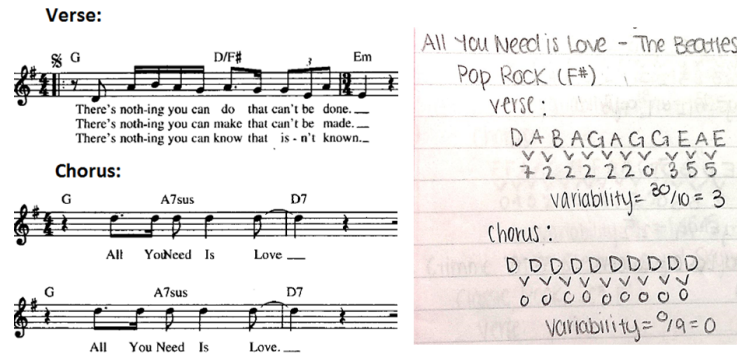 Verse:
G D/F# Em
3
There's noth-ing you can do that can't be done.
There's noth-ing you can make that can't be made.
There's noth-ing you can know that is - n't known.
Chorus:
G A7sus D7
All YouNeed Is Love
G A7sus D7
All You Need Is Love.
All You Need is Love - The Beatles
Pop Rock (F#)
verse:
D A B A G A G G E A E
7 2 2 2 2 2 0 3 5 5
variability = 30/10 = 3
chorus:
D D D D D D D D D D
0 0 0 0 0 0 0 0 0
variability = 0/9 = 0